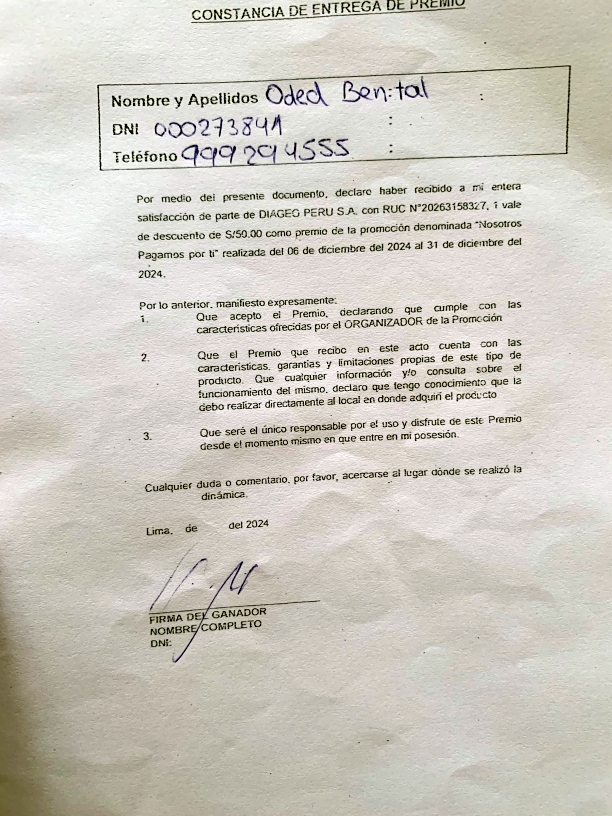 CONSTANCIA DE ENTREGA DE PREMIO
Nombre y Apellidos Oded Ben-tal :
DNI 00027384A :
Teléfono 999294555 :
Por medio del presente documento, declaro haber recibido a mi entera
satisfacción de parte de DIAGEO PERU S.A. con RUC N°20263158327, 1 vale
de descuento de S/50.00 como premio de la promoción denominada "Nosotros
Pagamos por ti" realizada del 06 de diciembre del 2024 al 31 de diciembre del
2024.
Por lo anterior, manifiesto expresamente:
1. Que acepto el Premio, declarando que cumple con las
características ofrecidas por el ORGANIZADOR de la Promoción
2. Que el Premio que recibo en este acto cuenta con las
características, garantías y limitaciones propias de este tipo de
producto. Que cualquier información y/o consulta sobre el
funcionamiento del mismo, declaro que tengo conocimiento que la
debo realizar directamente al local en donde adquirí el producto
3. Que seré el único responsable por el uso y disfrute de este Premio
desde el momento mismo en que entre en mi posesión.
Cualquier duda o comentario, por favor, acercarse al lugar dónde se realizó la
dinámica.
Lima, de del 2024
FIRMA DEL GANADOR
NOMBRE COMPLETO
DNI: